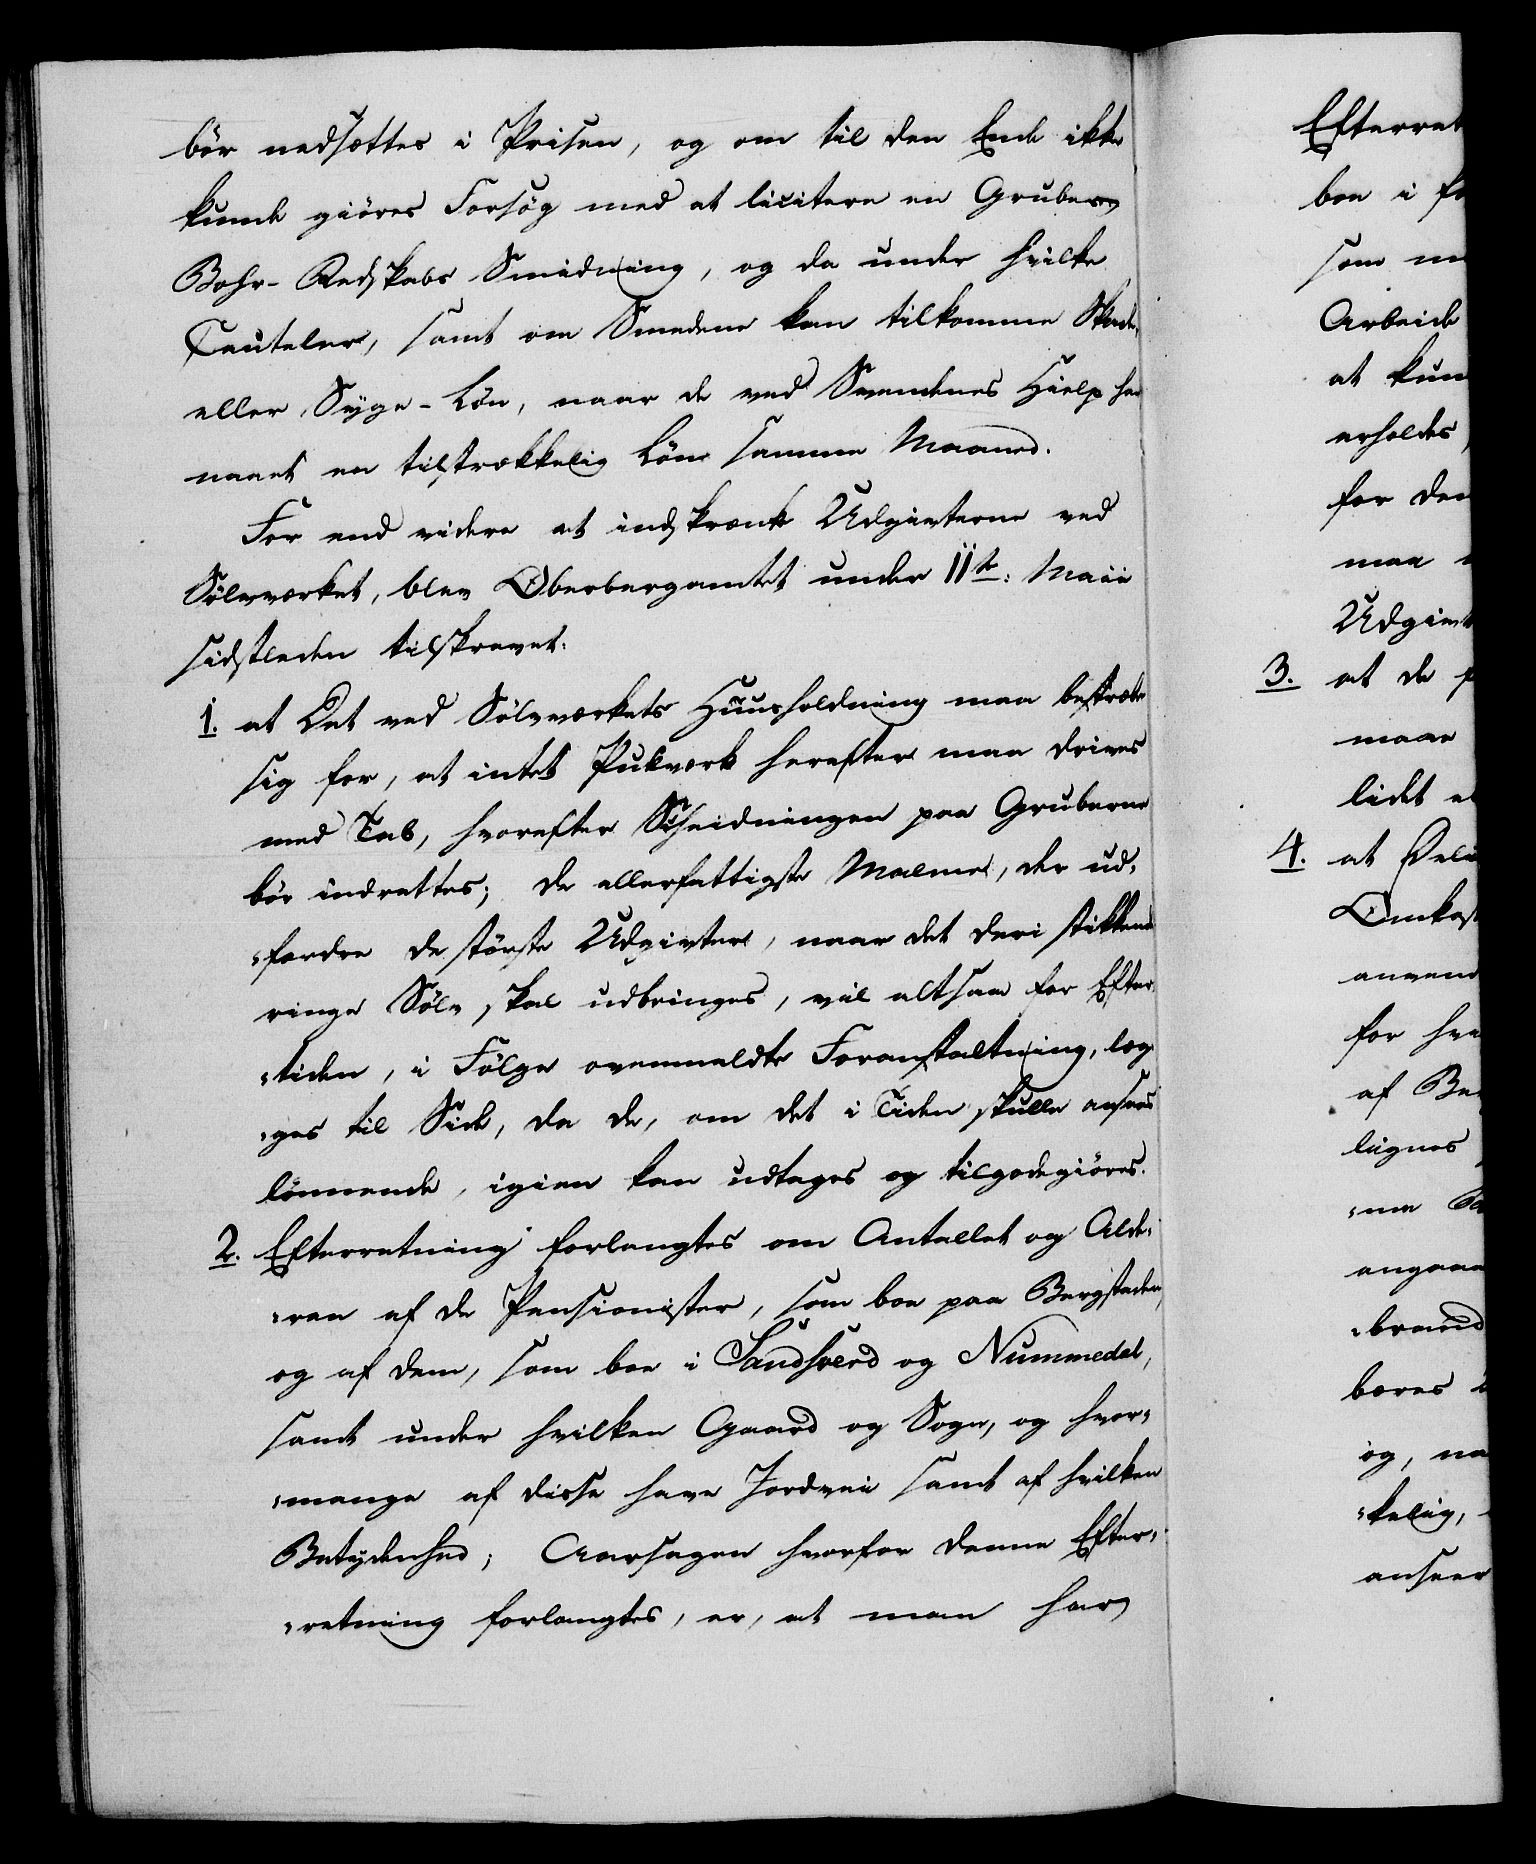 bör nedsættes i Prisen, og om til den Ende ikke
kunde giöres Forsög med at licitere en Grubes
Bohr-Redskabs Smidning, og da under hvilke
Cauteler, samt om Smedene kan tilkomme Skade,
eller Syge-Lön, naar de ved Svendenes Hielp har
naaet en tilstrækkelig Lön samme Maaned.
For end videre at indskrænke Udgivterne ved
Sölvværket, blev Oberbergamtet under 11te: Maii
sidstleden tilskrevet:
1. at Det ved Sölvværkets Huusholdning maa bestræbe
sig for, at intet Pukværk herefter maa drives
med Tab, hvorefter Scheidningen paa Gruberne
bör indrettes; de allerfattigste Malme, der ud-
-fordre de störste Udgivter, naar det deri stikkende
ringe Sölv skal udbringes, vil altsaa for Efter-
-tiden, i Fölge ovenmeldte Foranstaltning, læg-
-ges til Side, da de, om det i Tiden skulle ansees
lönnende, igien kan udtages og tilgodegiöres.
2. Efterretning forlangtes om Antallet og Alde-
-ren af de Pensionister, som boe paa Bergstaden,
og af dem, som boe i Sandsverd og Nummedal,
samt under hvilken Gaard og Sogn, og hvor-
-mange af disse have Jordvei samt af hvilken
Betydenhed; Aarsagen hvorfor denne Efter-
-retning forlangtes, er, at man har
Efterret
boe i
som
Arbeide
at kun
erholdes,
for den
maa
Udgivt
3. at de
maae
lidet
4. at
Omkost
anvend
for
af
lignes
angaae
bæres
og, na
-kelig,
anseer